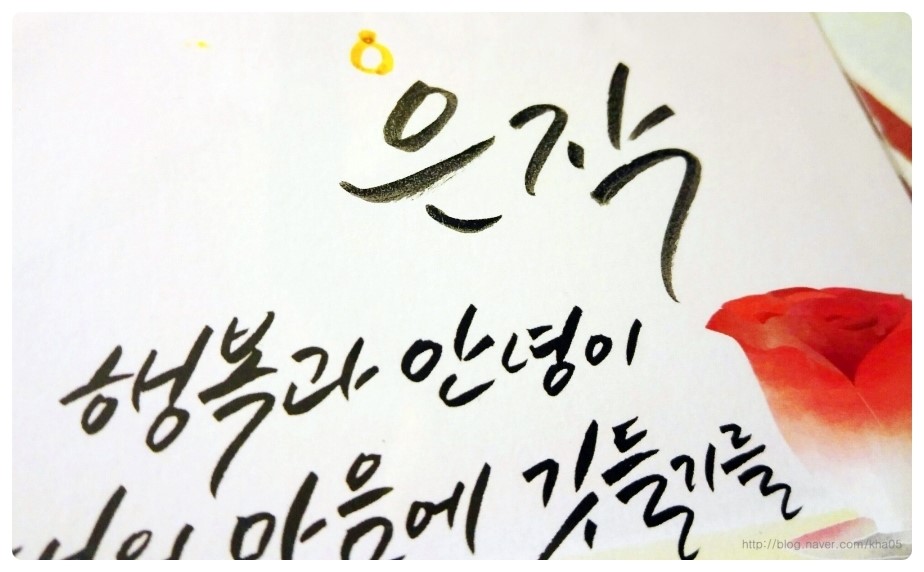 은작
행복과 안녕이
마음에 깃들기를
http://blog.naver.com/kha05